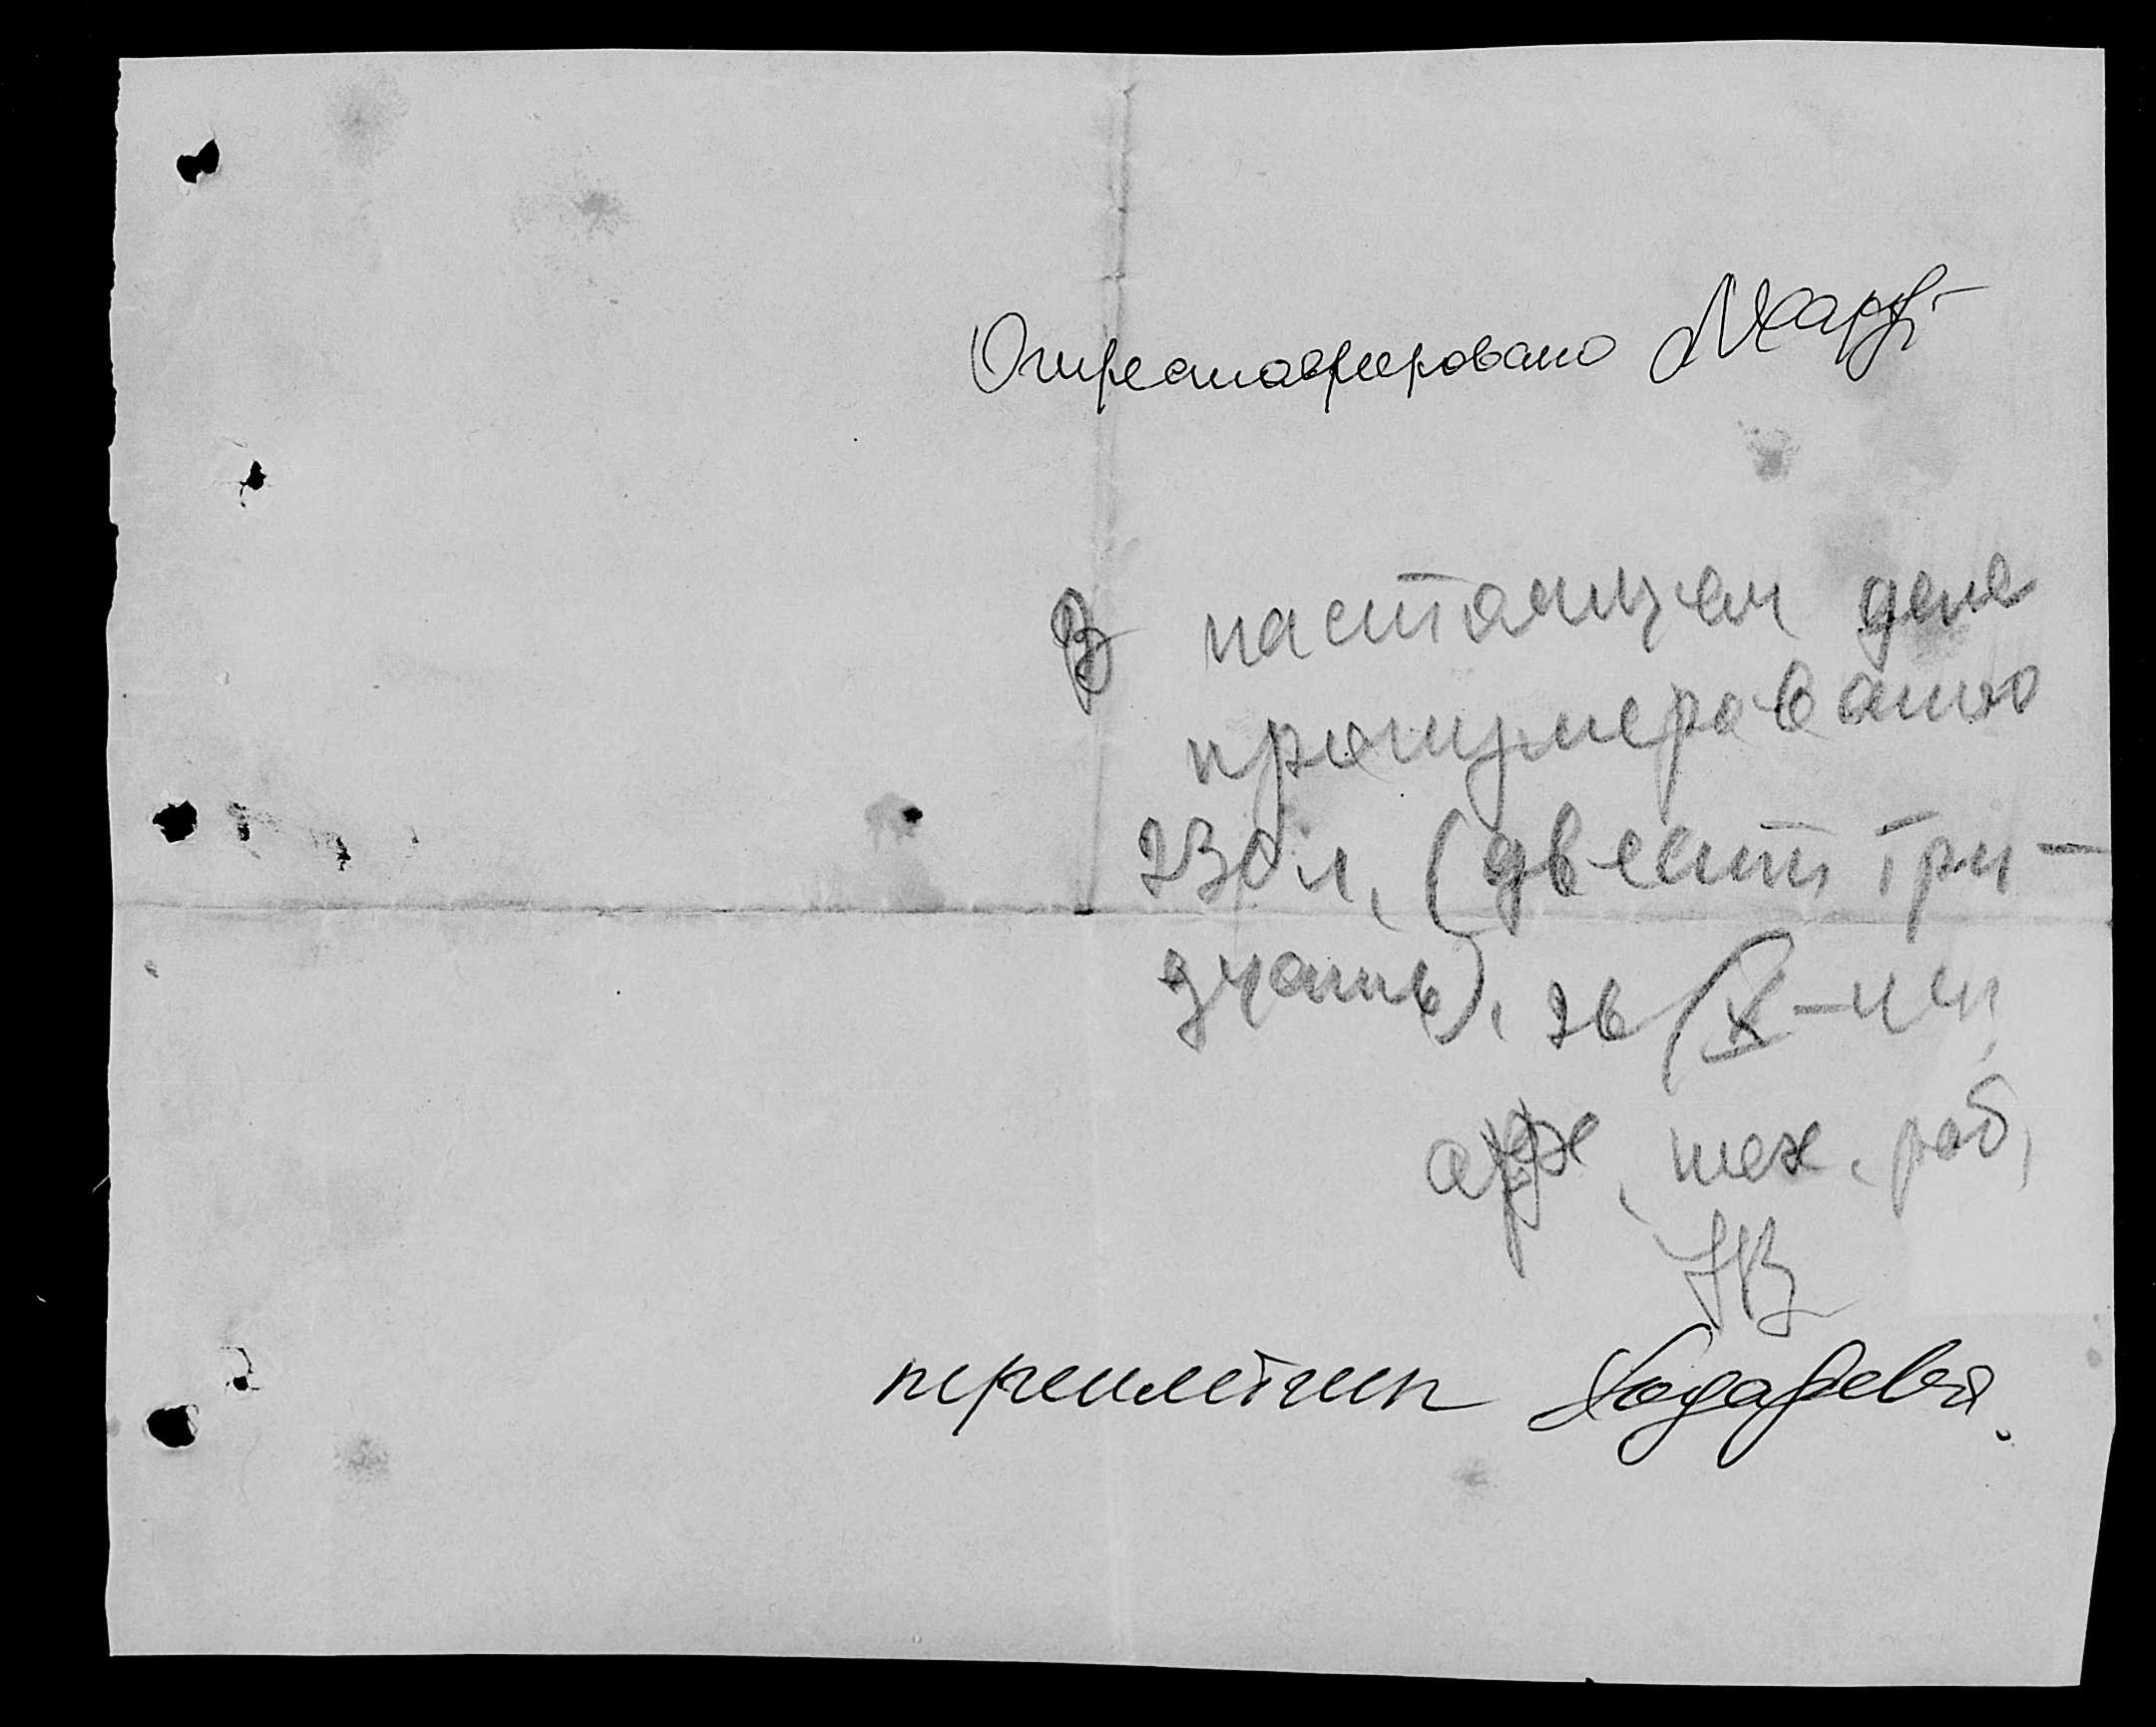 Отреставрировано
В настоящем деле
пронумеровано
230 л. (двести три-
дцать). 26/X-
арх. тех. раб.
переплетчик Ходарева.